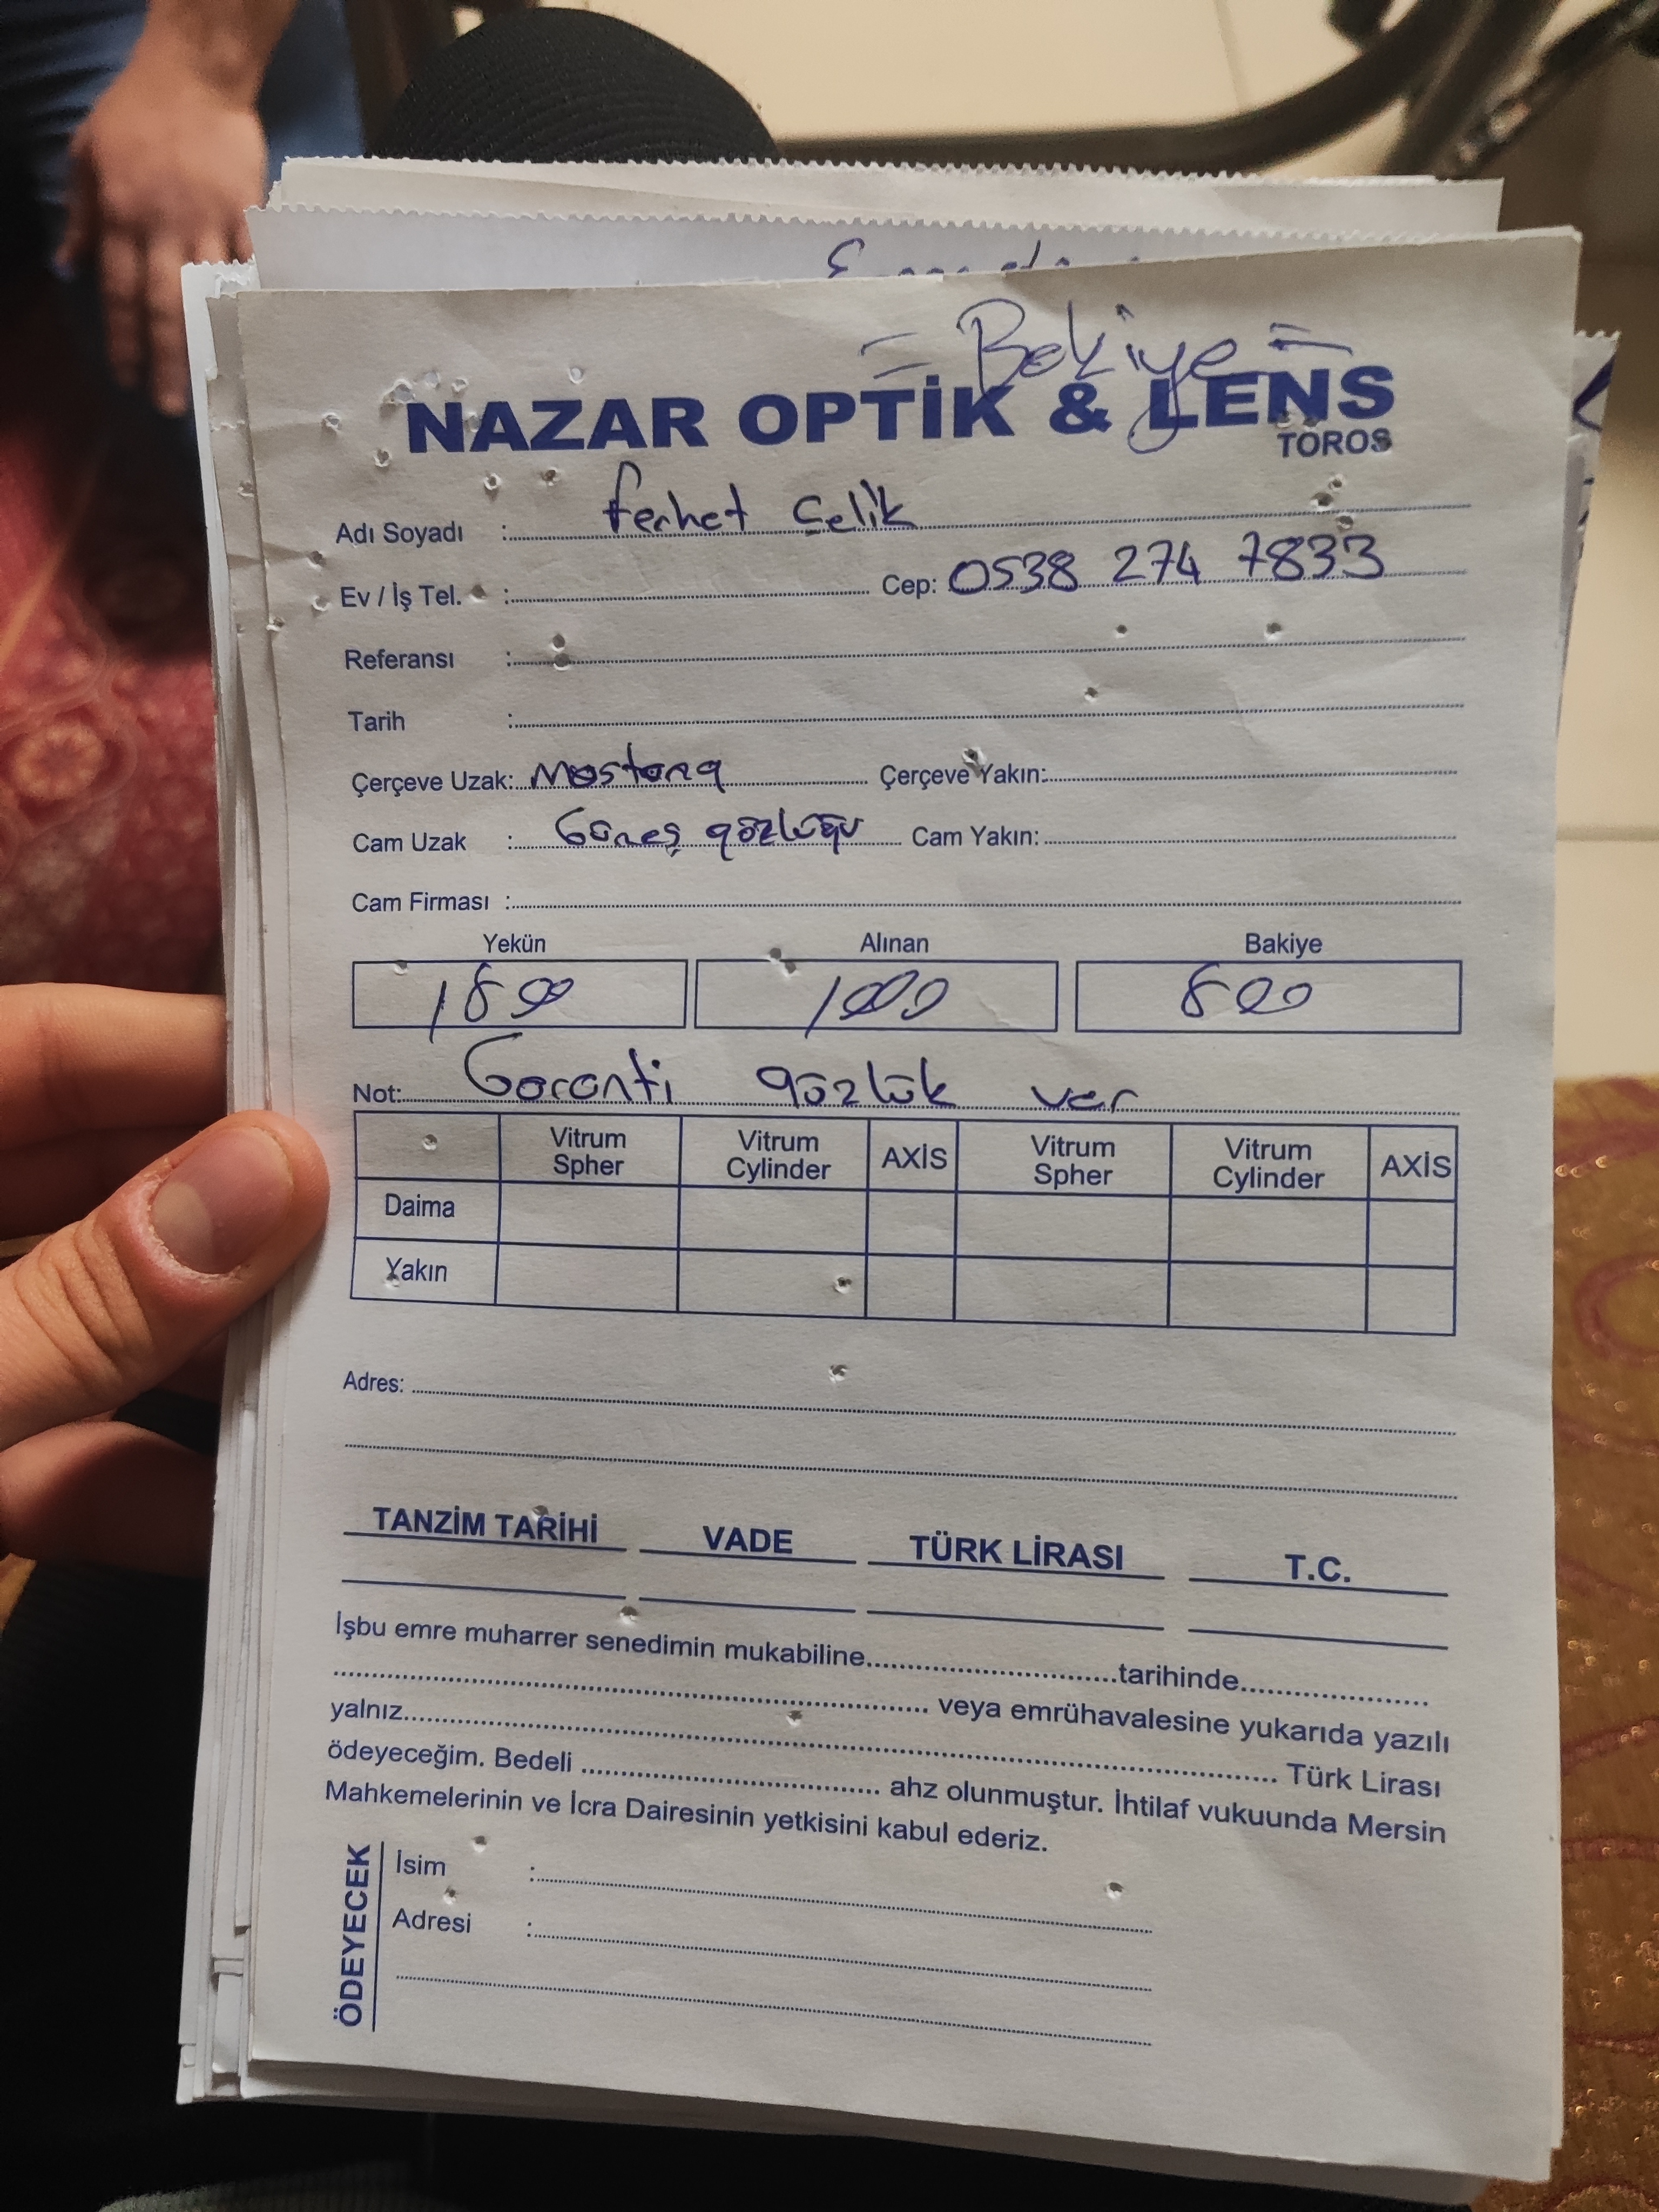 = Bakiye =
NAZAR OPTİK & LENS
TOROS
Adı Soyadı : Ferhat Çelik
Ev / İş Tel. : Cep: 0538 274 7833
Referansı :
Tarih :
Çerçeve Uzak: Mostang Çerçeve Yakın:
Cam Uzak : Güneş gözlüğü Cam Yakın:
Cam Firması :
Yekün Alınan Bakiye
1800 1000 800
Not: Garanti gözlük var
Vitrum Spher Vitrum Cylinder AXİS Vitrum Spher Vitrum Cylinder AXİS
Daima
Yakın
Adres:
TANZİM TARİHİ VADE TÜRK LİRASI T.C.
İşbu emre muharrer senedimin mukabiline..............................tarihinde.......................
........................................................................ veya emrühavalesine yukarıda yazılı
yalnız.......................................................................................................... Türk Lirası
ödeyeceğim. Bedeli .................................... ahz olunmuştur. İhtilaf vukuunda Mersin
Mahkemelerinin ve İcra Dairesinin yetkisini kabul ederiz.
ÖDEYECEK
İsim :
Adresi :